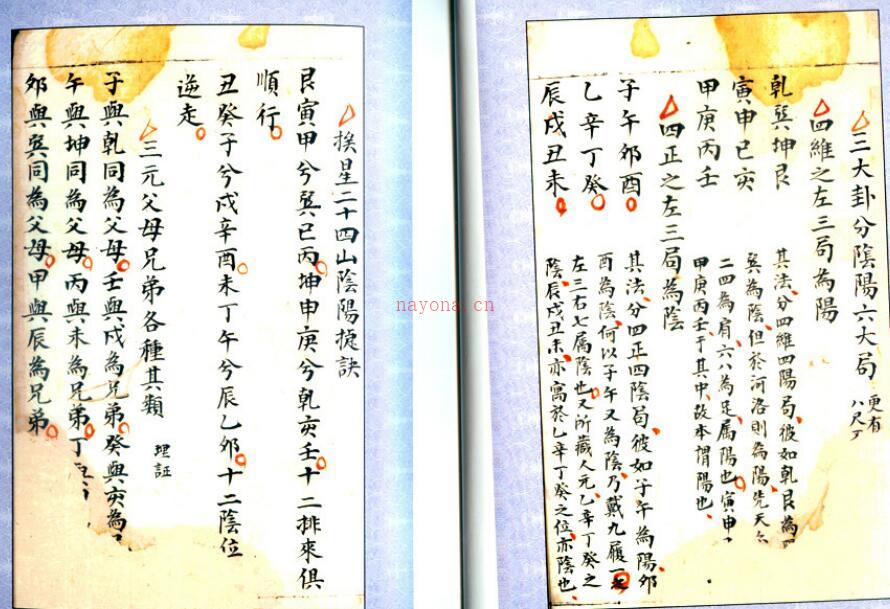 三大卦分陰陽六大局
更有
八尺丁
四維之左三局為陽
乾巽坤艮
寅申巳亥
甲庚丙壬
其法分四維四陽局彼如乾艮為
巽為陰但於河洛則為陽先天
二四為肩六八為足属陽也寅申
甲庚丙壬于其中故本謂陽也
四正之左三局為陰
子午夘酉
乙辛丁癸
辰戌丑未
其法分四正四陰局彼如子午為陽夘
酉為陰何以子午又為陰乃戴九履一
左三右七属陰也又所藏人元乙辛丁癸之
陰辰戌丑未亦寓於乙辛丁癸之位亦陰也
挨星二十四山陰陽捷訣
艮寅甲兮巽巳丙坤申庚兮乾亥壬十二排來俱
順行
丑癸子兮戌辛酉未丁午兮辰乙夘十二陰位
逆走
三元父母兄弟各種其類
理証
子與乾同為父母壬與戌為兄弟癸與亥為
午與坤同為父母丙與未為兄弟丁
夘與巽同為父母甲與辰為兄弟
nayona.cn